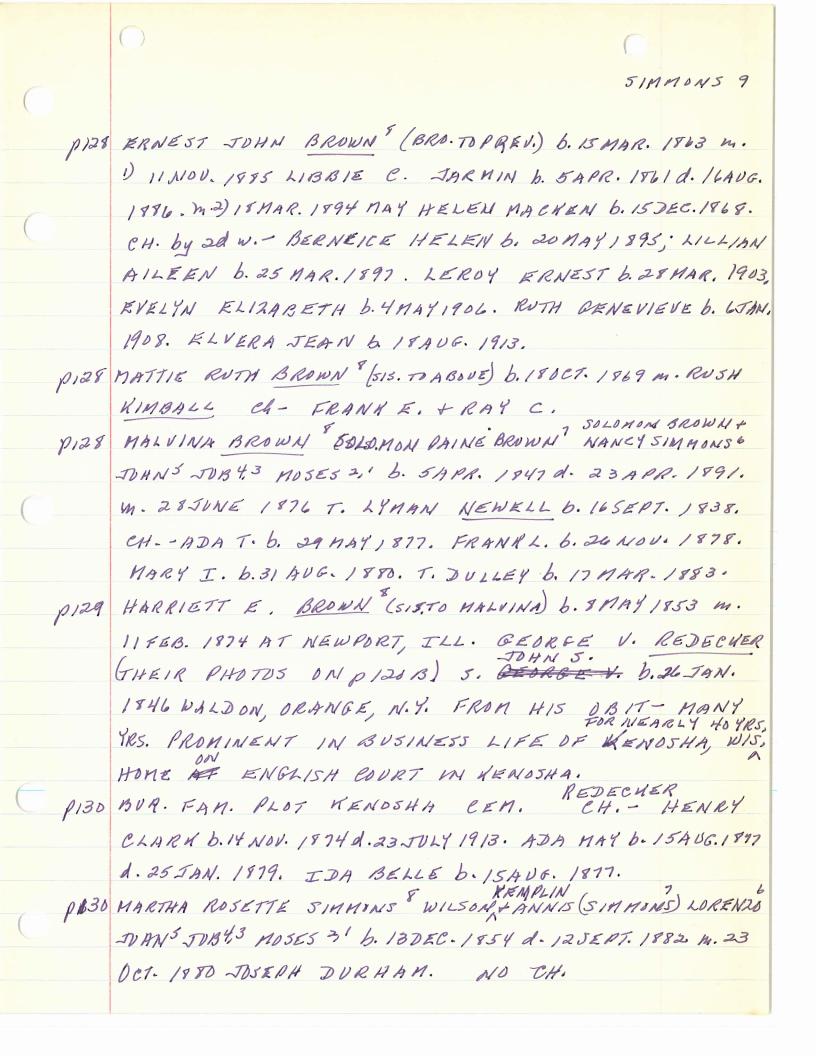 SIMMONS 9
p128 ERNEST JOHN BROWN⁸ (BRO. TO PREV.) b. 15 MAR. 1863 m.
1) 11 NOV. 1885 LIBBIE C. JARMIN b. 5 APR. 1861 d. 16 AUG.
1886. m. 2) 18 MAR. 1894 MAY HELEN MACKEN b. 15 DEC. 1868.
CH. by 2d w. - BERNEICE HELEN b. 20 MAY 1895; LILLIAN
AILEEN b. 25 MAR. 1897. LEROY ERNEST b. 28 MAR. 1903,
EVELYN ELIZABETH b. 4 MAY 1906. RUTH GENEVIEVE b. 6 JAN.
1908. ELVERA JEAN b 18 AUG. 1913.
p128 MATTIE RUTH BROWN⁸ (SIS. TO ABOVE) b. 18 OCT. 1869 m. RUSH
KIMBALL Ch - FRANK E. + RAY C.
SOLOMON BROWN +
p128 MALVINA BROWN⁸ (SOLOMON PAINE BROWN⁷ NANCY SIMMONS⁶
JOHN⁵ JOB⁴,³ MOSES ²,¹ b. 5 APR. 1847 d. 23 APR. 1891.
m. 28 JUNE 1876 T. LYMAN NEWELL b. 16 SEPT. 1838.
CH. - ADA T. b. 29 MAY 1877. FRANK L. b. 26 NOV. 1878.
MARY I. b. 31 AUG. 1880. T. DULLEY b. 17 MAR. 1883.
p129 HARRIETT E. BROWN⁸ (SIS. TO MALVINA) b. 8 MAY 1853 m.
11 FEB. 1874 AT NEWPORT, ILL. GEORGE V. REDECHER
JOHN S.
(THEIR PHOTOS ON p 120 B) S. GEORGE V. b. 26 JAN.
1846 WALDON, ORANGE, N.Y. FROM HIS OBIT - MANY
FOR NEARLY 40 YRS,
YRS. PROMINENT IN BUSINESS LIFE OF KENOSHA, WIS,
ON
HOME AT ENGLISH COURT IN KENOSHA.
REDECHER
p130 BUR. FAM. PLOT KENOSHA CEM. CH. - HENRY
CLARK b. 14 NOV. 1874 d. 23 JULY 1913. ADA MAY b. 15 AUG. 1877
d. 25 JAN. 1879. IDA BELLE b. 15 AUG. 1877.
KEMPLIN
p130 MARTHA ROSETTE SIMMONS⁸ WILSON + ANNIS (SIMMONS)⁷ LORENZO⁶
IVAN⁵ JOB⁴,³ MOSES ²,¹ b. 13 DEC. 1854 d. 12 SEPT. 1882 m. 23
OCT. 1880 JOSEPH DURHAM. NO CH.